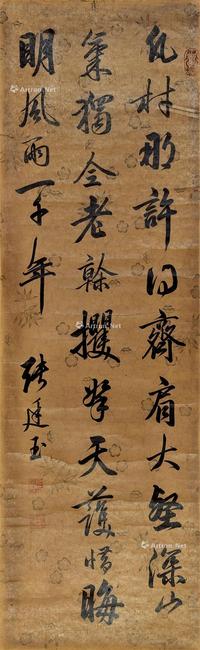 凡材那許得齊肩大壑深山
氣獨全老幹攫拏天護惜晦
明風雨一千年
張廷玉
Artron.Net